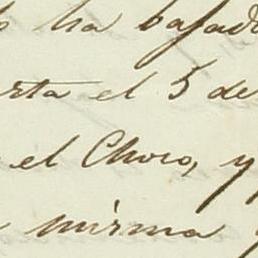 ha bajado
rta el 5 de
el Choco, y
misma y